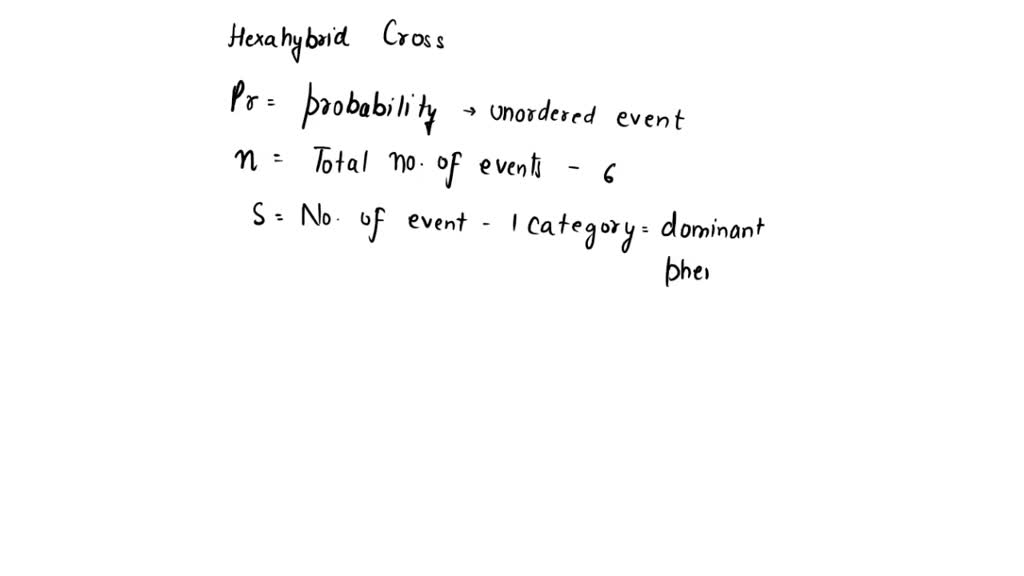 Hexahybrid Cross
Pr = probability → unordered event
n = Total no. of events - 6
S = No. of event - 1 category = dominant
phe